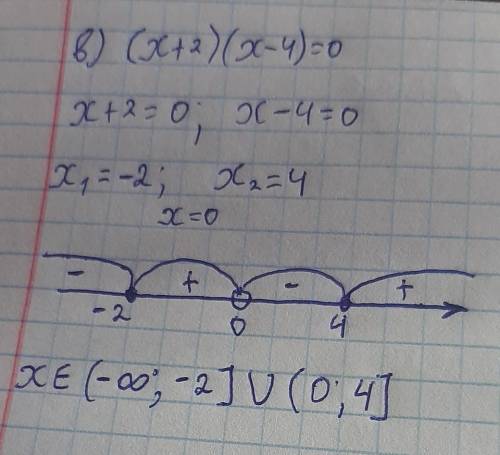 в) (x+2)(x-4)=0
x+2=0; x-4=0
x₁=-2; x₂=4
x=0
- + - +
-2 0 4
x∈(-∞;-2]∪(0;4]